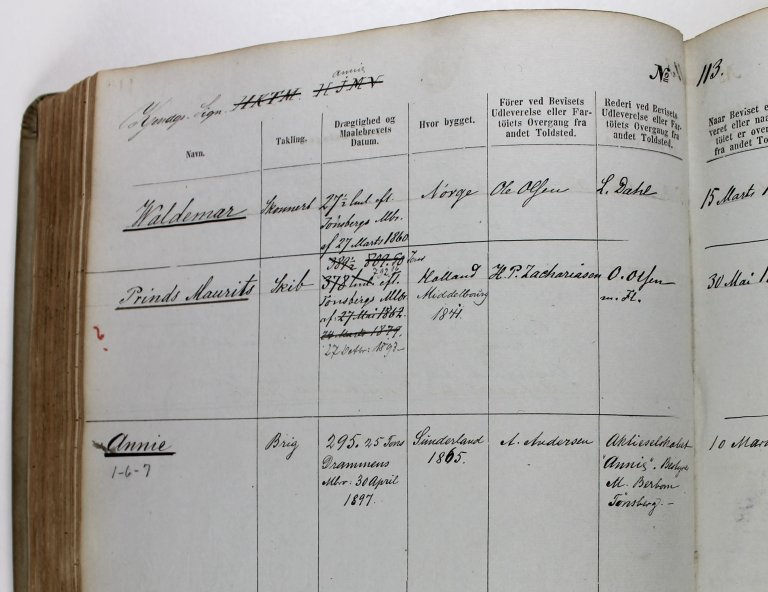 Annie
Kjendgs. Sign. HKTM. HJMV
No
113.
Navn.
Takling.
Drægtighed og
Maalebrevets
Datum.
Hvor bygget.
Fører ved Bevisets
Udleverelse eller Far-
töiets Overgang fra
andet Toldsted.
Rederi ved Bevisets
Udleverelse eller Far-
töiets Overgang fra
andet Toldsted.
Naar Beviset e
veret eller naa
töiet er over
fra andet To
Waldemar
Skonnert
27½ Cml. eft.
Tønsbergs Mbr.
af 27 Marts 1860
Norge
Ole Olsen
L. Dahl
15 Marts 1
Prinds Maurits
Skib
389½ 809.80 Tons
378 Cml. eft.
Tønsbergs Mlb.
af 27 Mai 1862
1879.
27 Octbr. 1897.
Holland
Middelburg
1841.
H. P. Zachariasen
O. Olsen
m. Fl.
30 Mai 1
Annie
1-6-7
Brig
295.25 Tons
Drammens
Mbr. 30 April
1897.
Sunderland
1865.
A. Andersen
Aktieselskabet
"Annie". Bestyr
M. Berbom
Tønsberg.-
10 Mar